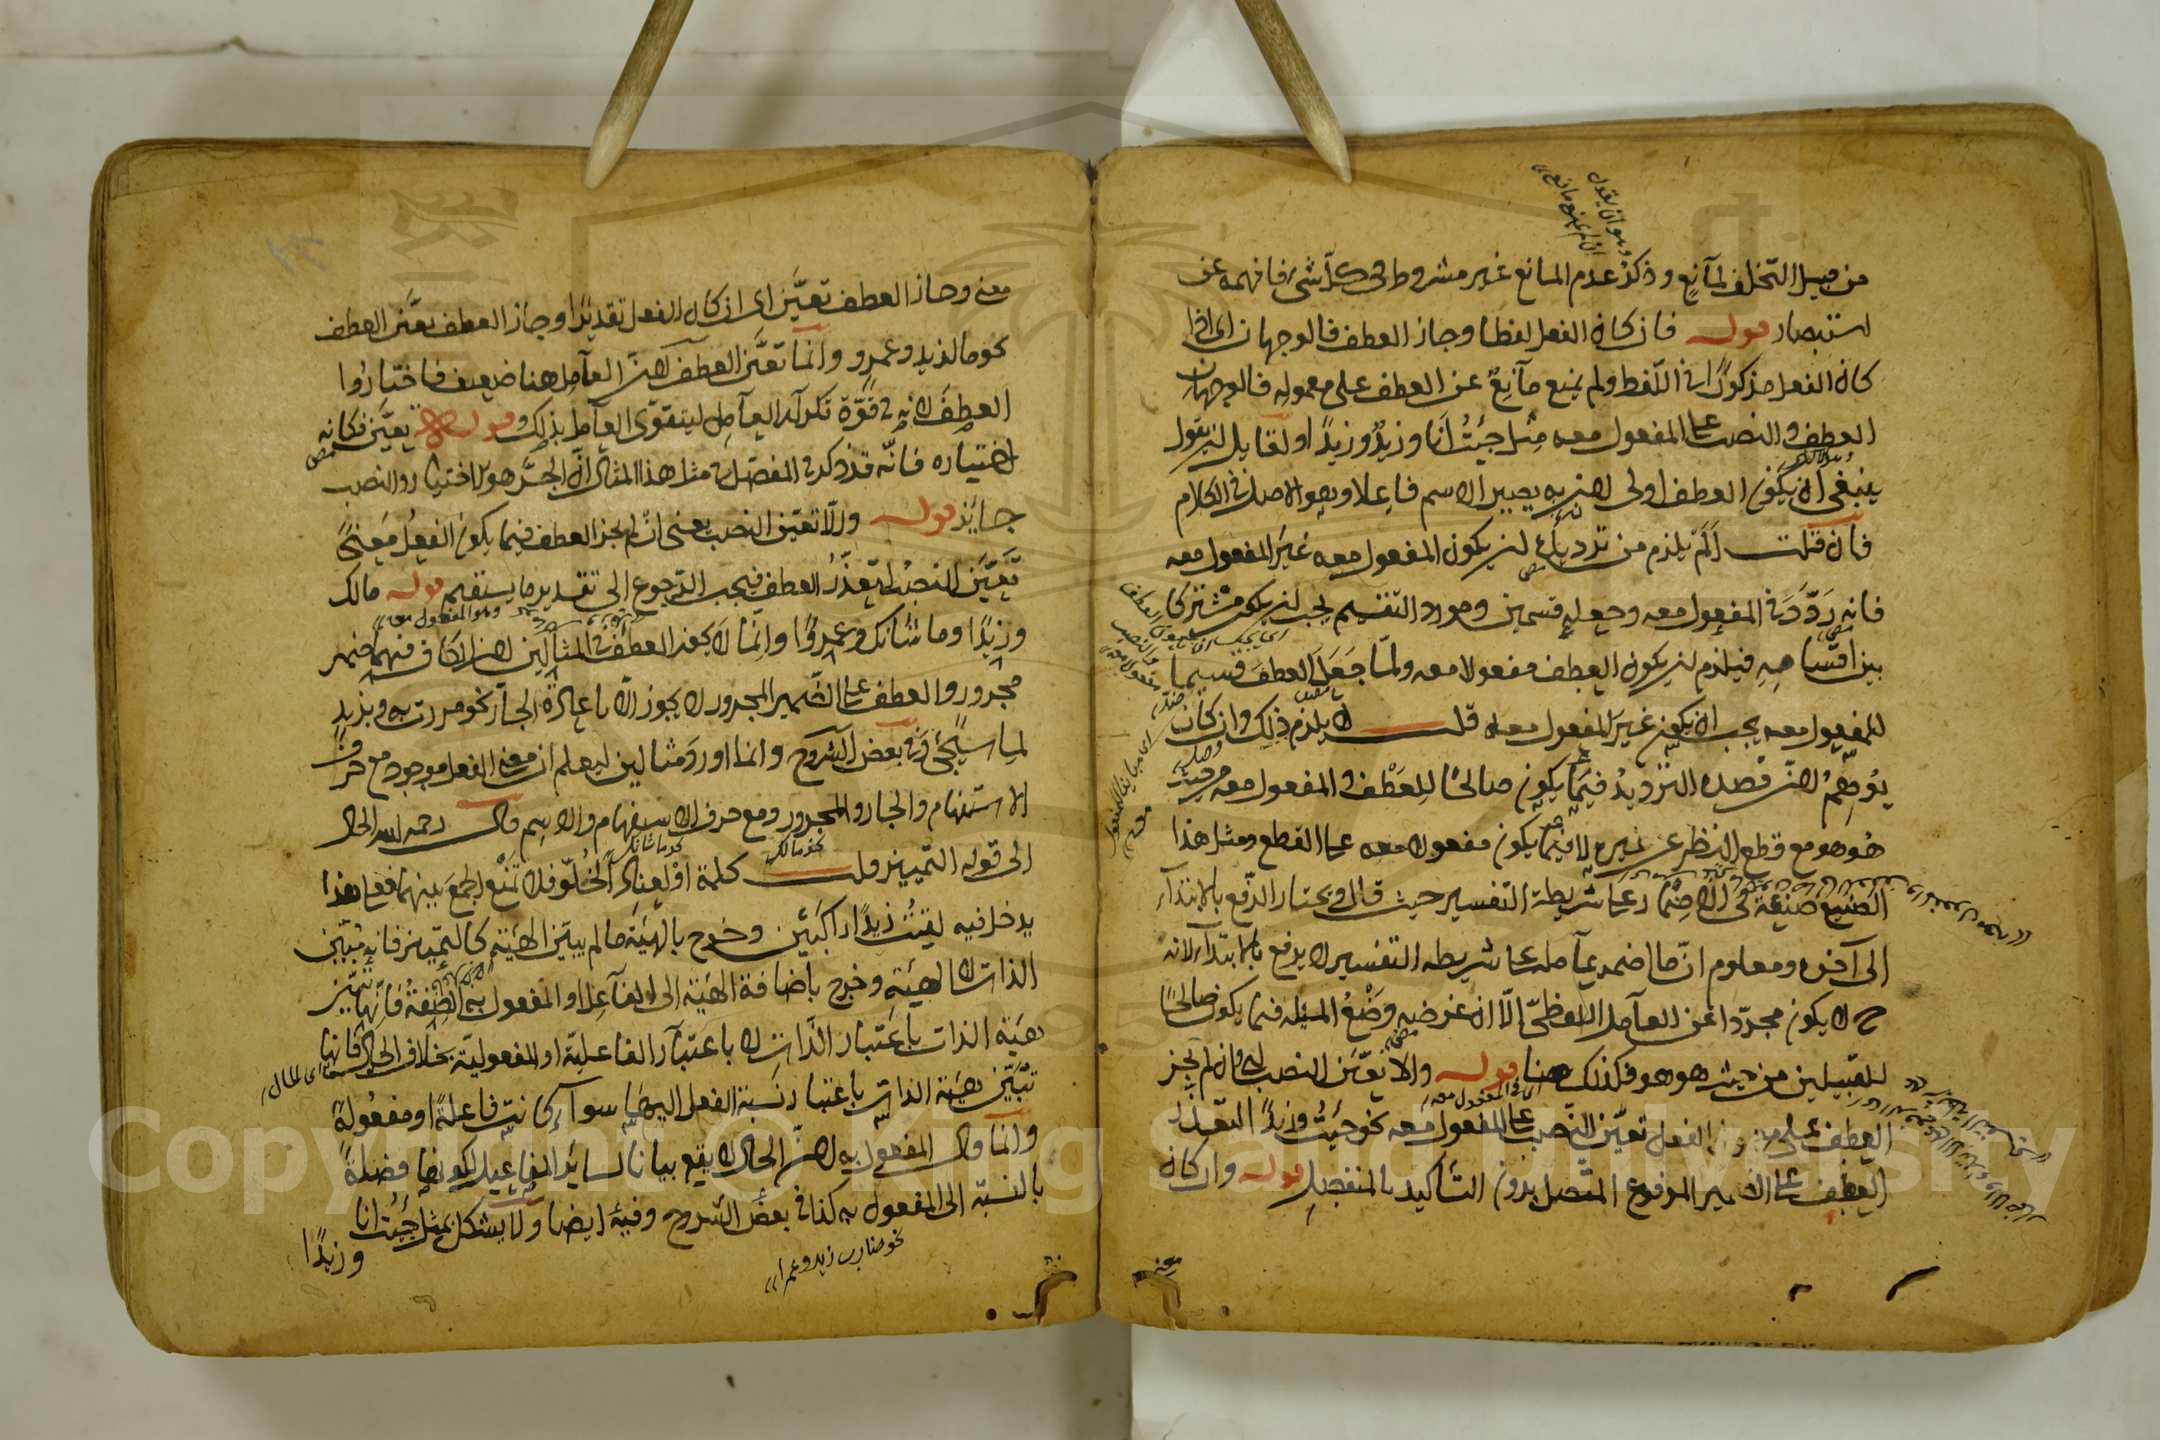 من قبيل التخلف لمانع وذكر عدم المانع غير مشروط في كل شيء فافهمه عن
استبصار قوله فان كان الفعل لفظا وجاز العطف فالوجهان اى اذا
كان الفعل مذكورًا في اللفظ ولم يمنع مانعٌ عن العطف على معموله فالوجهان
العطف والنصب على المفعول معه مثل جئتُ أنا وزيدٌ وزيدًا ولقايل ان يقول
ينبغي ان يكون العطف اولى لان به يصير الاسم فاعلا وهو الاصل في الكلام
فان قلت ألَمْ يلزم من ترديده ان يكون المفعول معه غيرَ المفعول معه
فانه ردَّدَ في المفعول معه وجعله قسمين ومورد التقسيم يجب ان يكون مشتركا
بين اقسامه فيلزم ان يكون العطف مفعولا معه ولمّا جَعَلَ العطفَ قسيما
للمفعول معه يجب ان يكون غيرَ المفعول معه قلت لا يلزم ذلك وان كان
يُوهِمُ لانّ قصده الترديدُ فيما يكون صالحًا لِلعَطْف والمفعول معه من حيث
هو هو مع قطع النظر عن غيره لا فيما يكون مفعولا معه على القطع ومثل هذا
الصنيع صنيعه في الاضمار على شريطة التفسير حيث قال ويختار الرفع بالابتداء
الى آخره ومعلوم انّ ما اضمر عامله على شريطه التفسير لا يرفع بالابتداء لانه
ح لا يكون مجرّدا عن العامل اللفظيّ الّا ان غرضه وَضْعُ المسئله فيما يكون صالحًا
للقبيلين من حيث هو هو فكذلك هنا قوله والا تعيّن النصب اى وان لم يجز
العطف على الفعل تعيّن النّصب على المفعول معه نحو جئتُ وزيدًا لتعذر
العطف على الضمير المرفوع المتّصل بدون التأكيد بالمنفصل قوله وان كان
معنى
معنى وجاز العطف تعيَّن اى ان كان الفعل تقديرًا وجاز العطف تعيَّن العطف
نحو ما لزيدٍ وعمرٍو وانما تعيَّن العطف لان العامل هنا ضعيف فاختاروا
العطف لانه في قوّة تكرار العامل ليتقوّى العامل بذلك وقوله تعيّن فكانه
اختياره فانّه قد ذكر في المفصل في مثل هذا المثال أنّ الجرّ هو الاختيار والنصب
جايز قوله والّا تعيّن النصب يعنى انْ لم يجز العطف فيما يكون الفعلُ مَعنىً
تَعَيَّنَ النصبُ لتعذّرُ العطف فيجب الرّجوع الى تقدير ما يستقيم قوله مالك
وزيدًا وما شانك وعمروًا وانما لا يجوز العطف في المثالين لان الكاف فيهما ضمير
مجرور والعطف على الضّمير المجرور لا يجوز الّا باعادة الجارّ نحو مررت به وبزيدٍ
لما سيَجئ في بعض الشروح وانما اورد مثالين ليعلم ان معنى الفعل موجود مع حرف
الاستفهام والجار والمجرور ومع حرف الاستفهام والاسم قال رحمه الله الحال
نحو مالك نحو ما شانك
الى قوله التمييز قلت كلمة اوْ لعِنادِ الخُلوّ فلا تمنع الجمعَ بينهما فعلى هذا
يدخل فيه لقيتُ زيدًا راكبَيْن وخرج بالهيئة ما لم يبيّن الهيئة كالتمييز فانه يُبَيّن
الذات لا الهيئة وخرج باضافة الهيئة الى الفاعل او المفعول به الصِّفةُ فانّها تبيّن
هيئة الذات باعتبار الذّات لا باعتبار الفاعليّة او المفعوليّة بخلاف الحال فانها
تبيّن هيئة الذات باعتبار نسبة الفعل اليها سواء كانت فاعلةً او مفعُولةً
وانما قال المفعول به لانّ الحال لا يقع بيانا لسائر المفاعيل لكونها فضلةً
بالنسبة الى المفعول به كذا في بعض الشروح وفيه ايضا ولا يشكل بمثل جئتُ انا
وزيدًا
نحو ضارب زيد وعمرا
Copyright © King Saud University